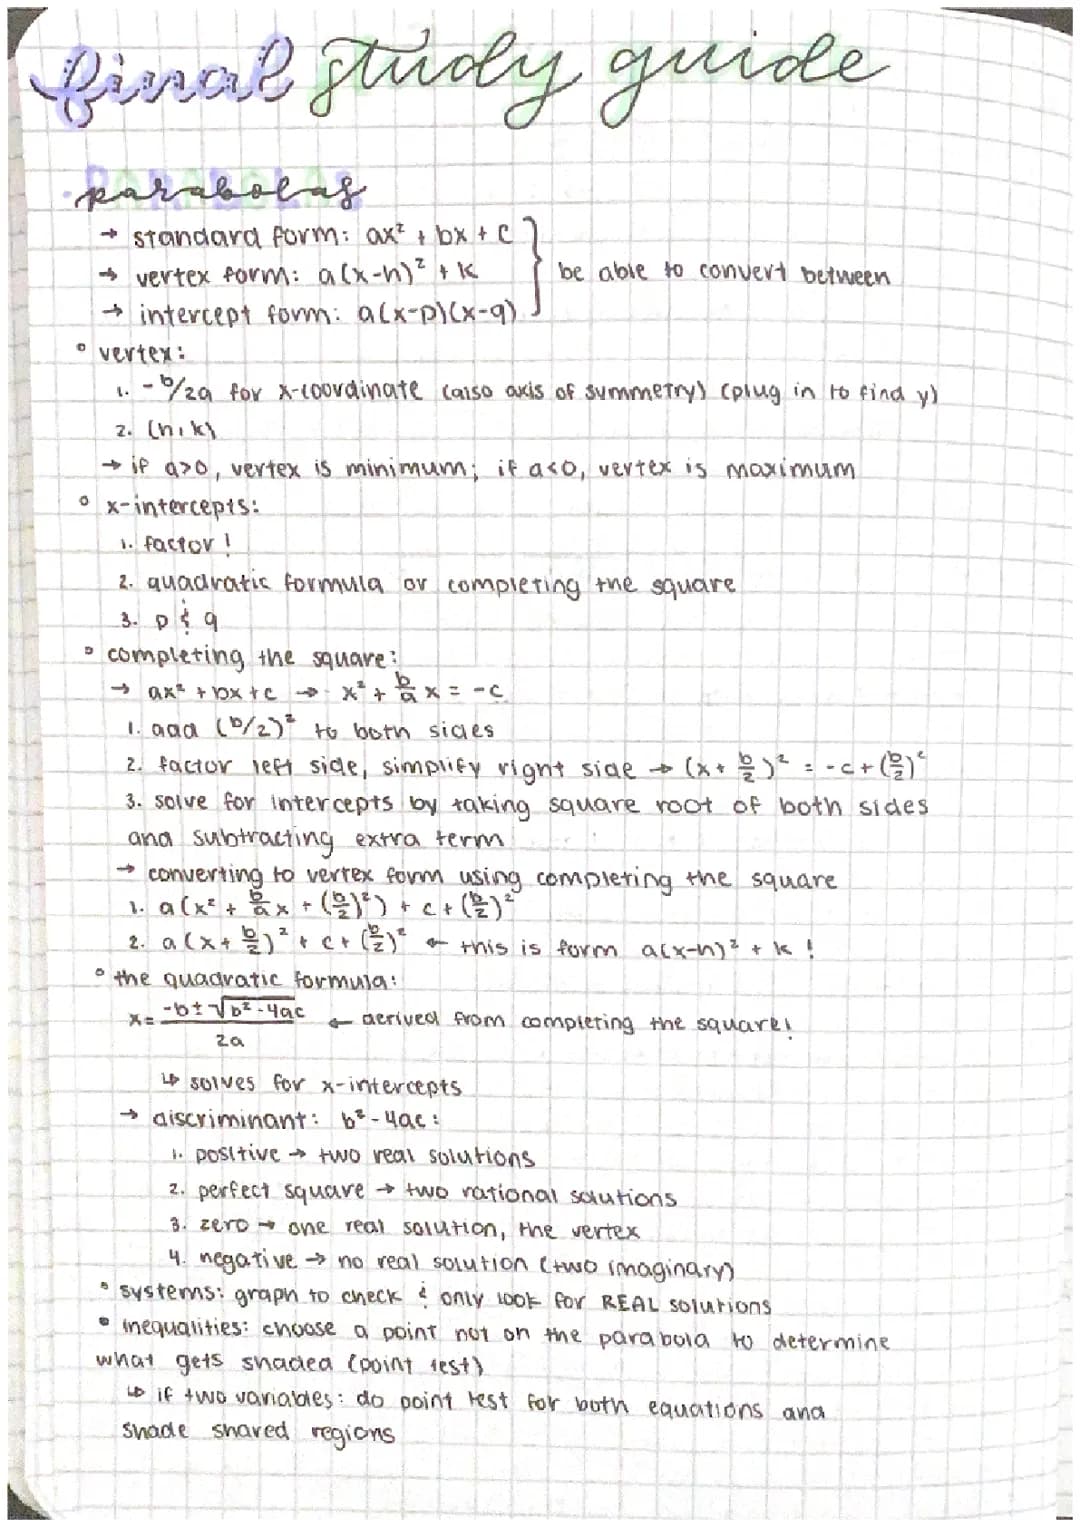 final study guide
parabolas
→ standard form: ax² + bx + c
→ vertex form: a(x-h)² + k } be able to convert between
→ intercept form: a(x-p)(x-q)
° vertex:
1. -b/2a for x-coordinate (also axis of symmetry) (plug in to find y)
2. (h,k)
→ if a>0, vertex is minimum; if a<0, vertex is maximum
° x-intercepts:
1. factor!
2. quadratic formula or completing the square
3. p & q
° completing the square:
→ ax² + bx + c → x² + b/a x = -c
1. add (b/2)² to both sides
2. factor left side, simplify right side → (x + b/2)² = -c + (b/2)²
3. solve for intercepts by taking square root of both sides
and subtracting extra term
→ converting to vertex form using completing the square
1. a(x² + b/a x + (b/2)²) + c + (b/2)²
2. a(x + b/2)² + c + (b/2)² ← this is form a(x-h)² + k !
° the quadratic formula:
x = -b ± √b² - 4ac / 2a ← derived from completing the square!
↳ solves for x-intercepts
→ discriminant: b² - 4ac:
1. positive → two real solutions
2. perfect square → two rational solutions
3. zero → one real solution, the vertex
4. negative → no real solution (two imaginary)
° systems: graph to check & only look for REAL solutions
• inequalities: choose a point not on the parabola to determine
what gets shaded (point test)
↳ if two variables: do point test for both equations and
shade shared regions